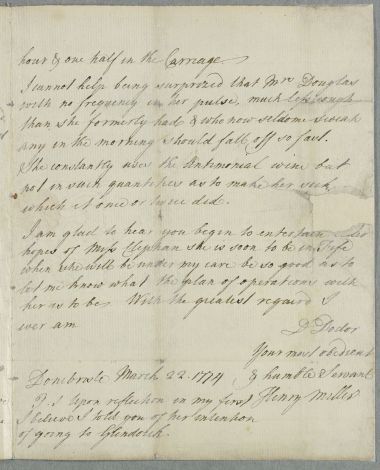 hour & one half in the Carriage
I cannot help being surprized that Mrs Douglas
with no frequency in her pulse, much less cough
than she formerly had & who now seldome sweats
any in the morning should fall off so fast.
She constantly uses the Antimonial wine but
not in such quantities as to make her sick
which it once or twice did.
I am glad to hear you begin to entertain
hopes of Miss Clephan she is soon to be in Fife
when she will be under my care be so good as to
let me know what the plan of operations with
her is to be. With the greatest regaird I
ever am
D Doctor
Your most obedient
Donibrisle March 22 1774 & humble Servant
Henry Miller
P.S. Upon reflection in my first
I believe I told you of her intention
of going to Glendoick.